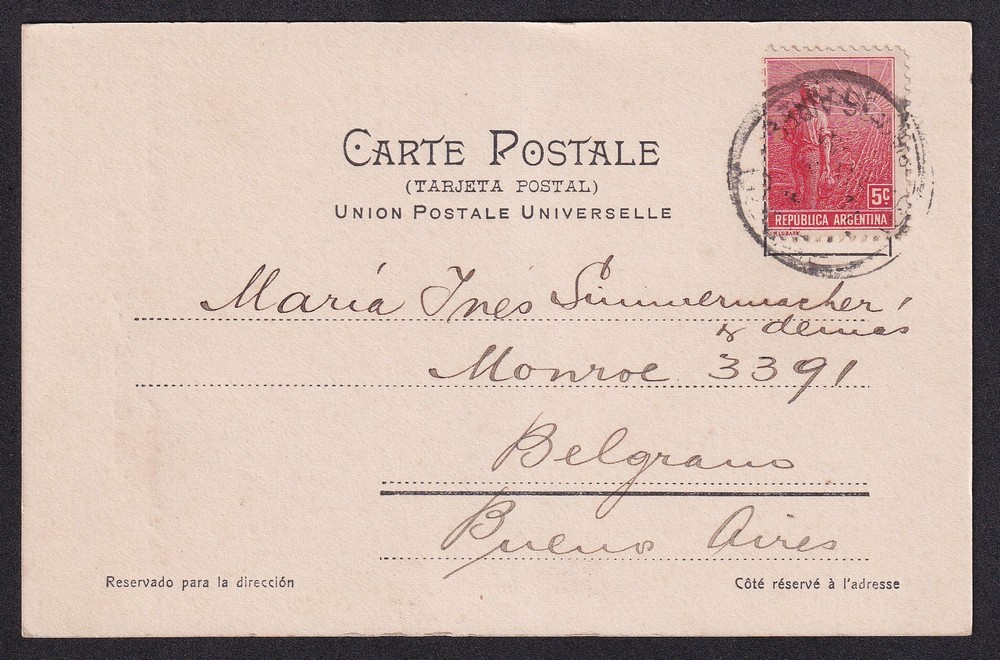 CARTE POSTALE
(TARJETA POSTAL)
UNION POSTALE UNIVERSELLE
5c
REPÚBLICA ARGENTINA
María Inés Simmermacher
y demas
Monroe 3391
Belgrano
Buenos Aires
Reservado para la dirección
Côté réservé à l'adresse